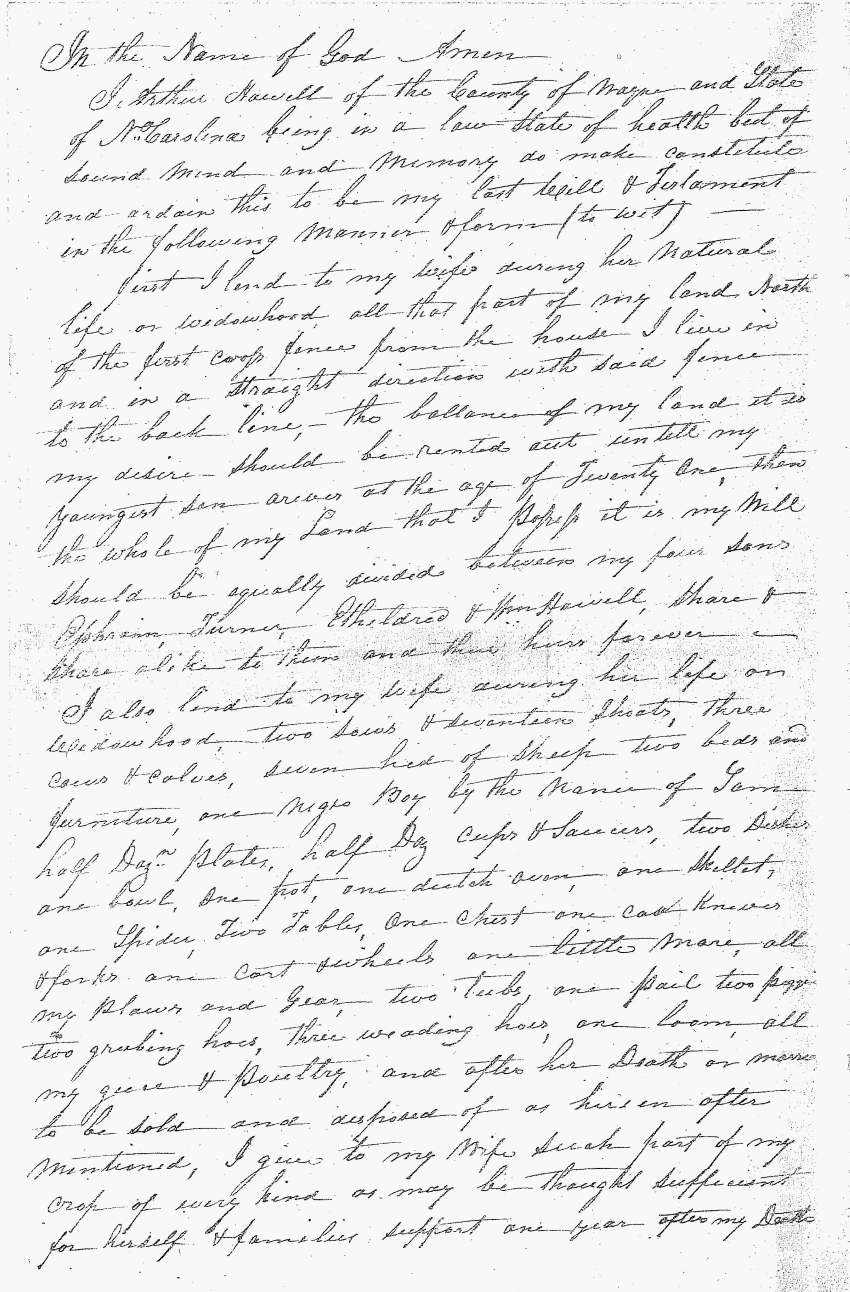 In the Name of God Amen
I, Arthur Howell of the County of Wayne and State
of No. Carolina being in a low State of health but of
sound mind and memory do make constitute
and ordain this to be my last Will & Testament
in the following manner & form (to wit) —
first I lend to my wife during her natural
life or widowhood, all that part of my land North
of the first cross fence from the house I live in
and in a straight direction with said fence
to the back line, – the ballance of my land it is
my desire should be rented out untill my
youngest son arives at the age of Twenty One, then
the whole of my Land that I possess it is my Will
should be equally divided between my four sons
Ephraim, Turner, Etheldred & Wm Howell, share &
share alike to them and their heirs forever –
I also lend to my wife during her life or
Widowhood, two sows & seventeen Shoats, three
cows & calves, seven hed of sheep two beds and
furniture, one Negro Boy by the Name of Tom
half Dozn plates, half Doz cups & Saucers, two Dishes
one bowl, one pot, one deutch oven, one skillet,
one Spider, Two Tables, One Chest one case Knives
& forks one cart & wheels one little mare, all
my plows and Gear, two Tubs, one pail two
two grubing hoes, three weading hoes, one loom, all
my geese & poultry, and after her Death or
to be sold and disposed of as hireen after
mentioned, I give to my Wife such part of my
crop of every kind as may be thought sufficient
for herself & families support one year after my Death